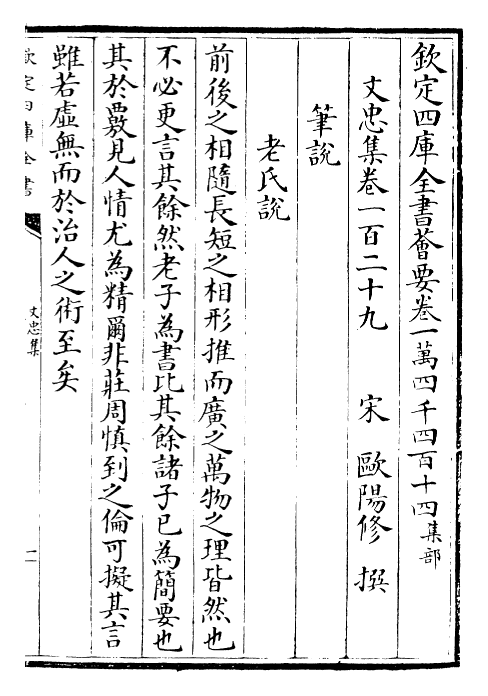 欽定四庫全書薈要卷一萬四千四百十四集部
文忠集卷一百二十九　宋　歐陽修　撰
筆說
老氏說
前後之相隨長短之相形推而廣之萬物之理皆然也
不必更言其餘然老子為書比其餘諸子已為簡要也
其於覈見人情尤為精爾非莊周慎到之倫可擬其言
雖若虛無而於治人之術至矣
欽定四庫全書
文忠集
一